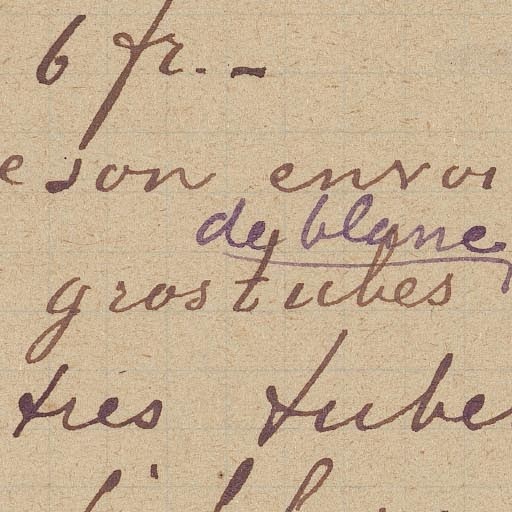 6 fr. -
e son envoi
de blanc
gros tubes
tres tube